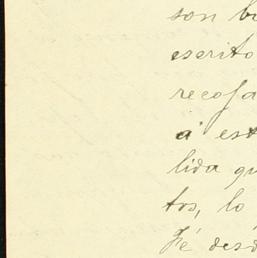 son bu
escrito
recoja
a' est
lida qu
tos, lo
Fé desd